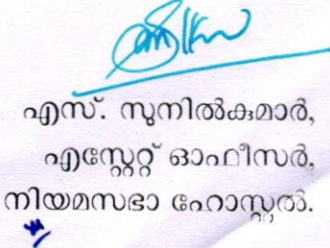 എസ്. സുനിൽകുമാർ,
എസ്റ്റേറ്റ് ഓഫീസർ,
നിയമസഭാ ഹോസ്റ്റൽ.